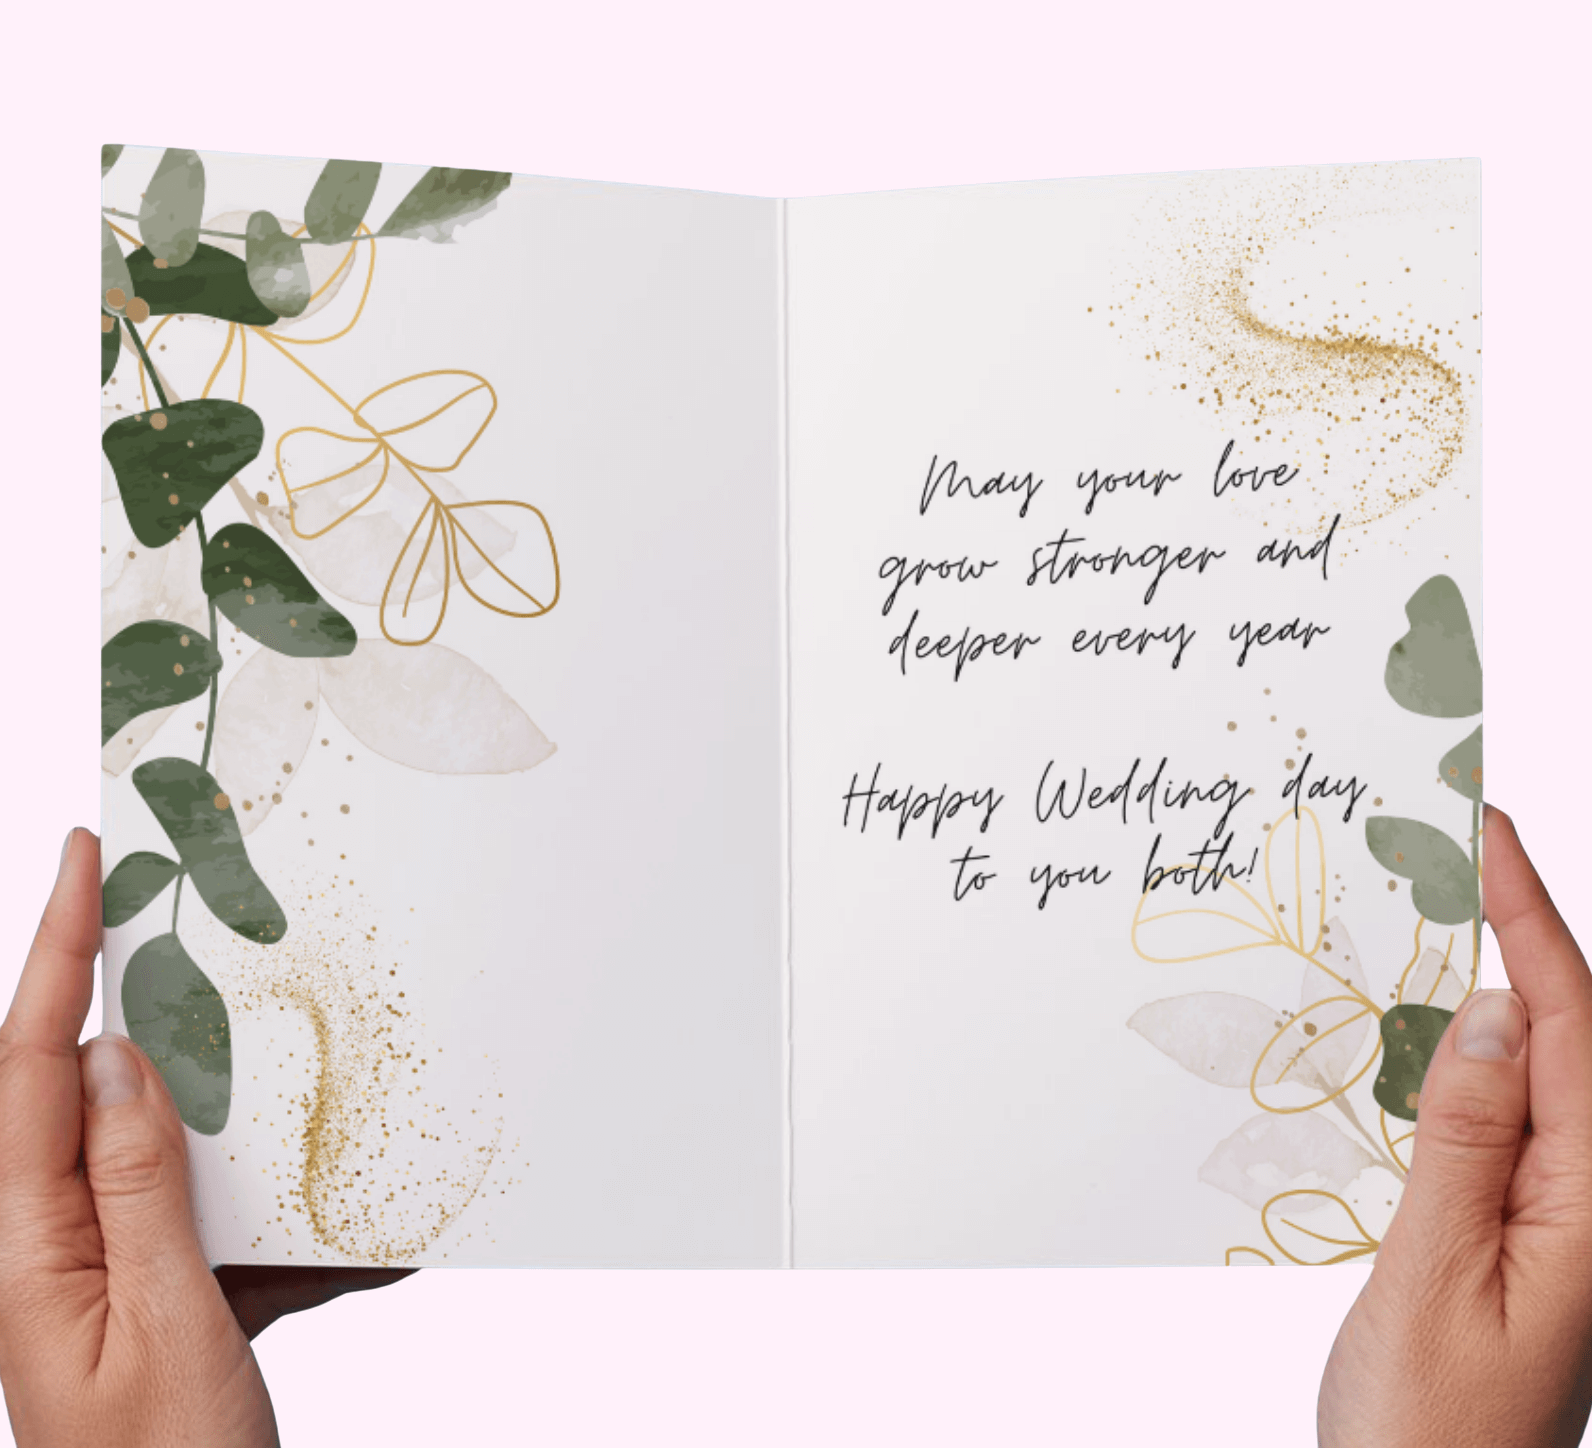 May your love
grow stronger and
deeper every year
Happy Wedding day
to you both!